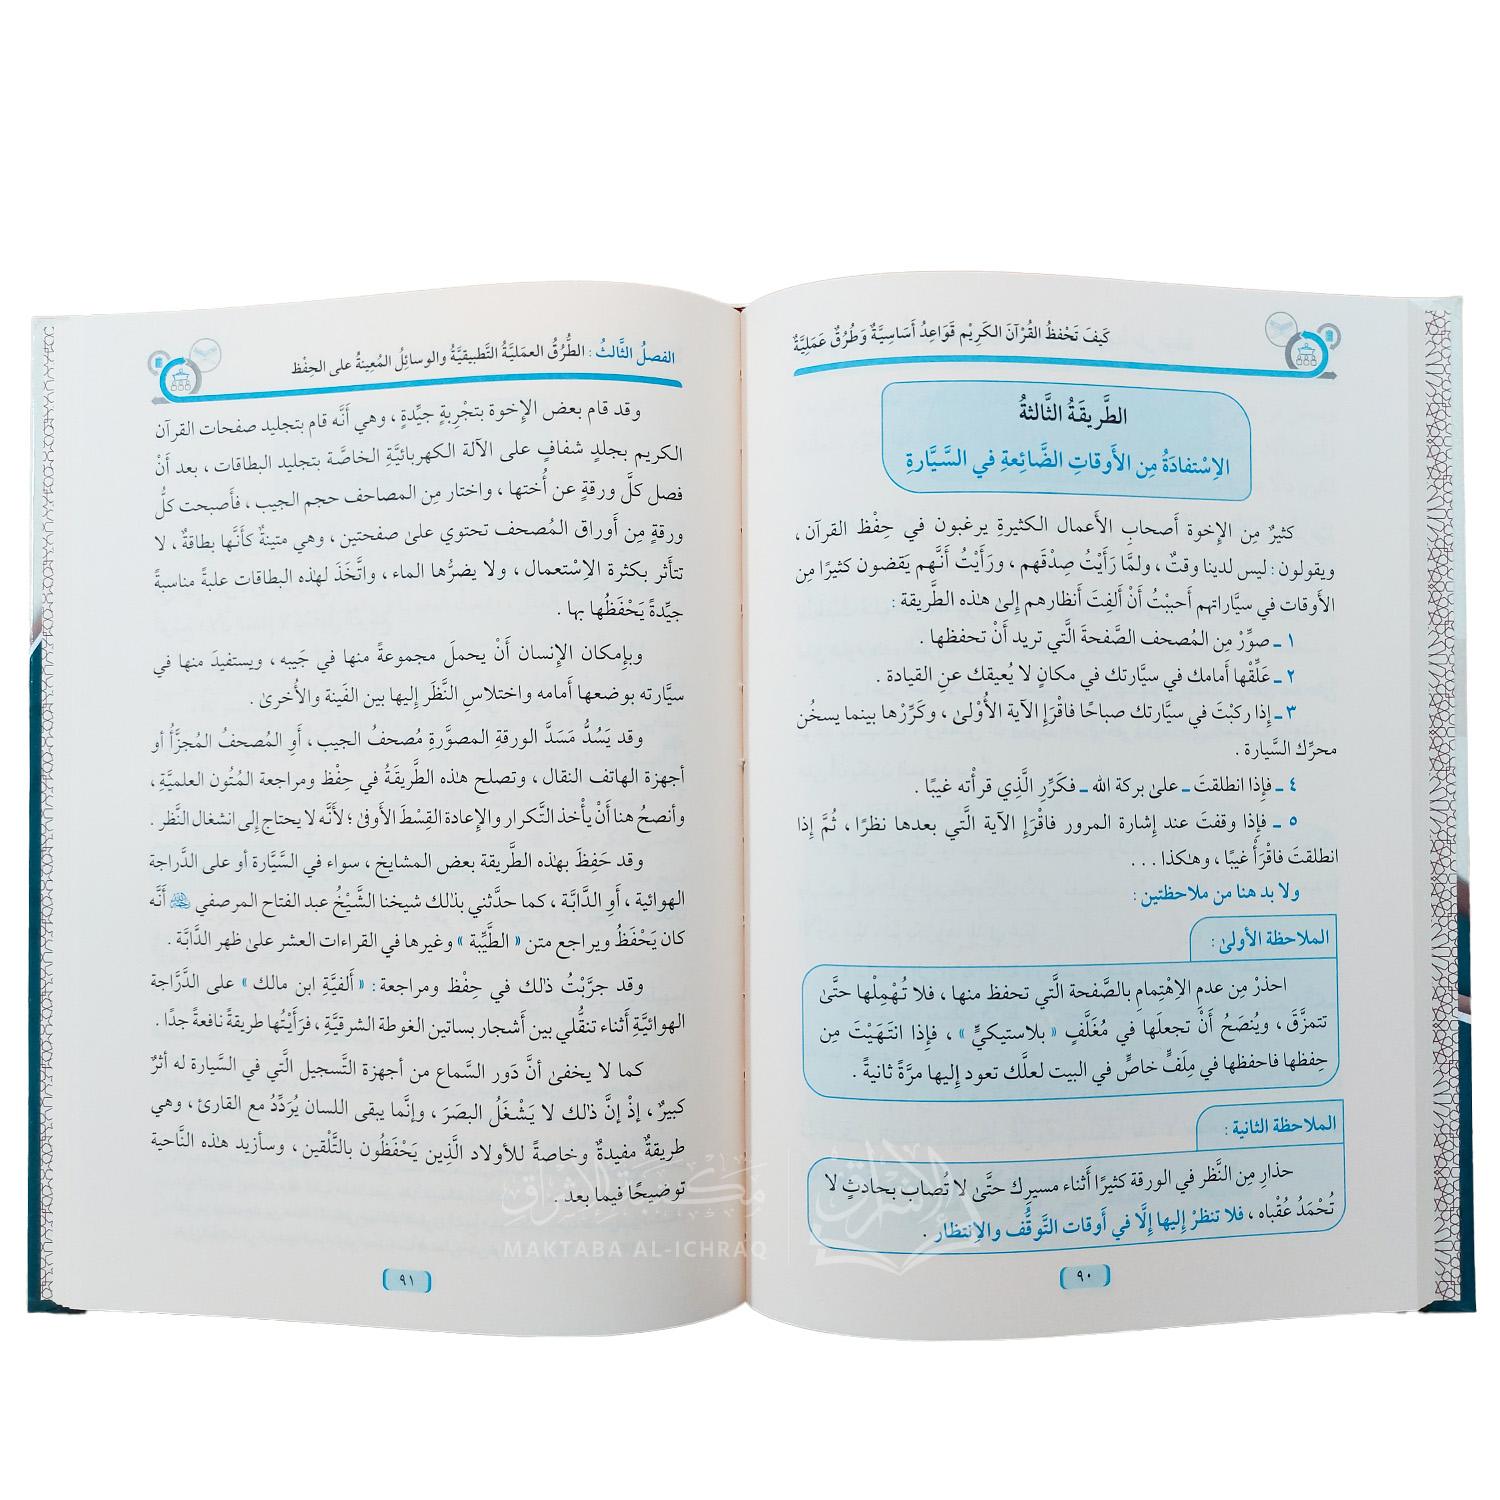 كَيفَ نَحْفظُ القُرْآنَ الكَرِيْم قَوَاعِدُ أَسَاسِيَّةٌ وَطُرُقٌ عَمَلِيَّةٌ
الطَّرِيقَةُ الثَّالثةُ
الاِسْتفادَةُ مِن الأَوقاتِ الضَّائِعةِ في السَّيَّارةِ
كثيرٌ مِن الإِخوة أَصحابِ الأَعمال الكثيرةِ يرغبون في حِفْظ القرآن ،
ويقولون : ليس لدينا وقتٌ ، ولمَّا رَأَيْتُ صِدْقَهم ، ورَأَيْتُ أَنَّهم يَقضون كثيرًا مِن
الأَوقات في سيَّاراتهم أَحببْتُ أَنْ أَلفِتَ أَنظارهم إِلىٰ هٰذه الطَّريقة :
١ ــ صوِّرْ مِن المُصحف الصَّفحةَ الَّتي تريد أَنْ تحفظها .
٢ ــ عَلِّقْها أَمامك في سيَّارتك في مكانٍ لا يُعيقك عنِ القيادة .
٣ ــ إِذا ركبْتَ في سيَّارتك صباحًا فاقْرَإِ الآية الأُوْلىٰ ، وكَرِّرْها بينما يسخُن
محرِّك السَّيارة .
٤ ــ فإِذا انطلقتَ ــ علىٰ بركة الله ــ فكَرِّرِ الَّذِي قرأْته غيبًا .
٥ ــ فإِذا وقفتَ عند إِشارة المرور فاقْرَإِ الآية الَّتي بعدها نظرًا ، ثُمَّ إِذا
انطلقتَ فاقْرَأْ غيبًا ، وهٰكذا . . .
ولا بد هنا من ملاحظتين :
الملاحظة الأولىٰ :
احذرْ مِن عدمِ الاِهْتِمامِ بالصَّفحة الَّتي تحفظ منها ، فلا تُهْمِلْها حتَّىٰ
تتمزَّقَ ، ويُنصَحُ أَنْ تجعلَها في مُغَلَّفٍ « بلاستيكيٍّ » ، فإِذا انتَهَيْتَ مِن
حِفظها فاحفظها في مِلَفٍّ خاصٍّ في البيت لعلَّك تعود إِليها مرَّةً ثانيةً .
الملاحظة الثانية :
حذارِ مِن النَّظر في الورقة كثيرًا أَثناء مسيرِك حتَّىٰ لا تُصاب بحادثٍ لا
تُحْمَدُ عُقْباه ، فلا تنظرْ إِليها إِلَّا في أَوقات التَّوقُّف والاِنتظار .
٩٠
الفصلُ الثَّالثُ : الطُّرُقُ العمَليَّةُ التَّطبيقيَّةُ والوسائِلُ المُعِينةُ على الحِفْظ
وقد قام بعض الإِخوة بتجْرِبةٍ جيِّدةٍ ، وهي أَنَّه قام بتجليد صفحات القرآن
الكريم بجلدٍ شفافٍ على الآلة الكهربائيَّةِ الخاصَّة بتجليد البطاقات ، بعد أَنْ
فصل كلَّ ورقةٍ عن أُختها ، واختار مِن المصاحف حجم الجيب ، فأَصبحت كلُّ
ورقةٍ مِن أَوراق المُصحف تحتوي علىٰ صفحتين ، وهي متينةٌ كأَنَّها بطاقةٌ ، لا
تتأَثر بكثرة الاِسْتعمال ، ولا يضرُّها الماء ، واتَّخَذَ لهذه البطاقات علبةً مناسبةً
جيِّدةً يَحْفَظُها بها .
وبإِمكان الإِنسان أَنْ يحملَ مجموعةً منها في جَيبه ، ويستفيدَ منها في
سيَّارته بوضعها أَمامه واختلاسِ النَّظَر إِليها بين الفَينة والأُخرىٰ .
وقد يَسُدُّ مَسَدَّ الورقةِ المصوَّرةِ مُصحفُ الجيب ، أَوِ المُصحفُ المُجزَّأُ أو
أجهزة الهاتف النقال ، وتصلح هٰذه الطَّريقَةُ في حِفْظ ومراجعة المُتُون العلميَّةِ ،
وأَنصحُ هنا أَنْ يأْخذ التَّكرار والإِعادة القِسْطَ الأَوفىٰ ؛ لأَنَّه لا يحتاج إِلى انشغال النَّظر .
وقد حَفِظَ بهٰذه الطَّريقة بعض المشايخ ، سواء في السَّيَّارة أو على الدَّراجة
الهوائية ، أَوِ الدَّابَّة ، كما حدَّثني بذٰلك شيخنا الشَّيْخُ عبد الفتاح المرصفي رحمه الله أَنَّه
كان يَحْفَظُ ويراجع متن « الطَّيِّبة » وغيرها في القراءات العشر علىٰ ظهر الدَّابَّة .
وقد جرَّبْتُ ذٰلك في حِفْظ ومراجعة : « أَلفيَّةِ ابن مالك » على الدَّرَّاجة
الهوائيَّةِ أَثناء تنقُّلي بين أَشجار بساتين الغوطة الشرقيَّة ، فرَأَيْتُها طريقةً نافعةً جدًا .
كما لا يخفىٰ أنَّ دَور السَّماع من أجهزة التَّسجيل الَّتي في السَّيارة له أثرٌ
كبيرٌ ، إذْ إنَّ ذٰلك لا يَشْغَلُ البصَرَ ، وإنَّما يبقى اللسان يُرَدِّدُ مع القارئ ، وهي
طريقةٌ مفيدةٌ وخاصةً للأولاد الَّذِين يَحْفَظُون بالتَّلْقين ، وسأزيد هٰذه النَّاحية
توضيحًا فيما بعد .
٩١
مكتبة الإشراق
MAKTABA AL-ICHRAQ
الإشراق